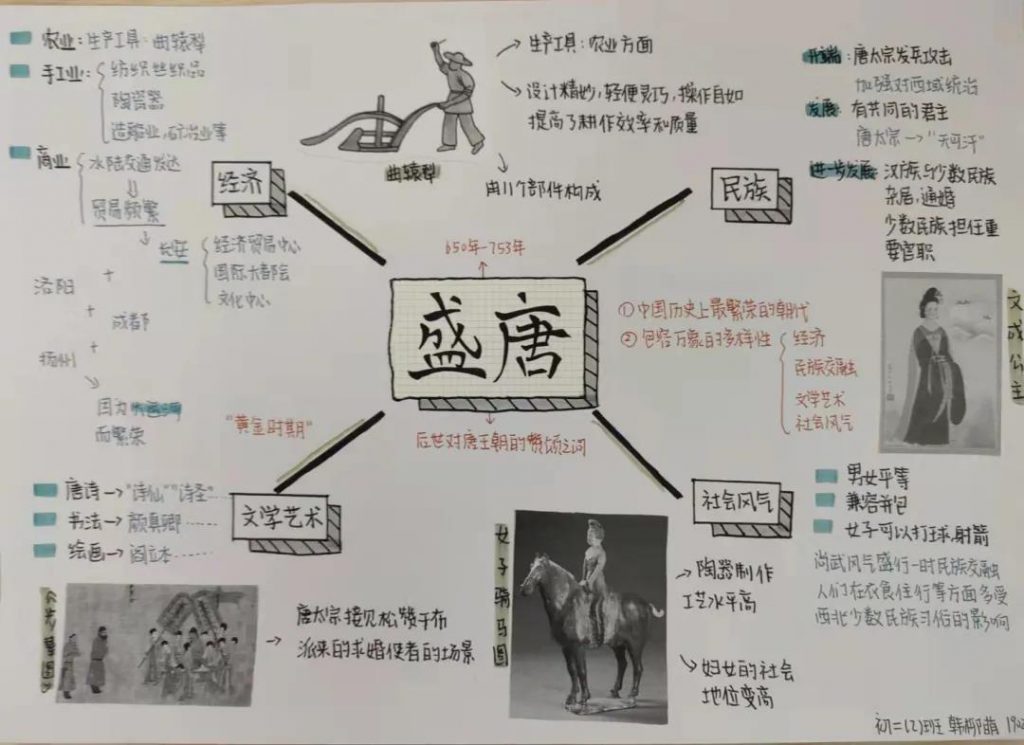 农业：生产工具：曲辕犁
手工业：
纺织丝织品
陶瓷器
造船业，矿冶业等
商业
水陆交通发达
贸易频繁
长安
经济贸易中心
国际大都会
文化中心
+
洛阳
+
成都
+
扬州
因为
而繁荣
经济
曲辕犁
生产工具：农业方面
设计精妙，轻便灵巧，操作自如
提高了耕作效率和质量
由11个部件构成
民族
开端：唐太宗发兵攻击
加强对西域统治
发展：有共同的君主
唐太宗→"天可汗"
进一步发展：汉族与少数民族
杂居，通婚
少数民族担任重
要官职
文成公主
650年-753年
盛唐
①中国历史上最繁荣的朝代
②包容万象的多样性
经济
民族交融
文学艺术
社会风气
"黄金时期"
后世对唐王朝的赞颂之词
唐诗→"诗仙""诗圣"……
书法→颜真卿……
绘画→阎立本……
文学艺术
唐太宗接见松赞干布
派来的求婚使者的场景
女子骑马图
陶器制作
工艺水平高
妇女的社会
地位变高
社会风气
男女平等
兼容并包
女子可以打球，射箭
尚武风气盛行一时民族交融
人们在衣食住行等方面多受
西北少数民族习俗的影响
初二(2)班 韩